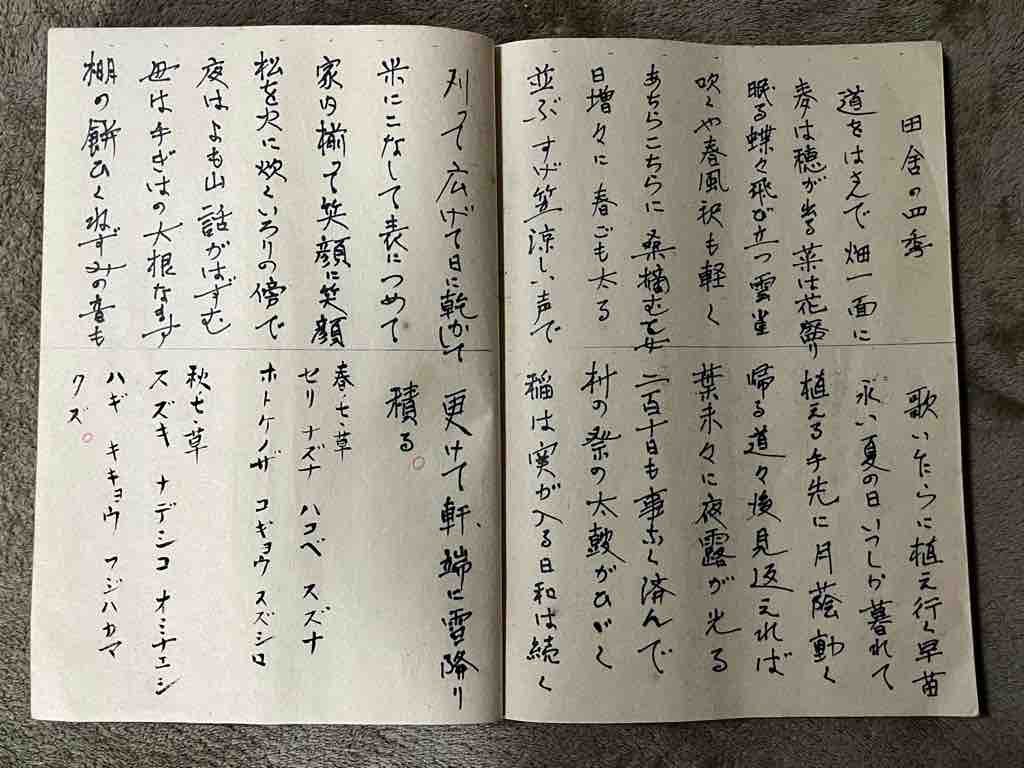 田舎の四季
道をはさんで畑一面に
麦は穂が出る菜は花盛り
眠る蝶々飛が立つ雲雀
吹くや春風袂も軽く
あちらこちらに桑摘む乙女
日増々に春ごも太る
並ぶすげ笠涼しい声で
歌いたらに植え行く早苗
永い夏の日いつしか暮れて
植える手先に月蔭動く
帰る道々後見返えれば
葉末々に夜露が光る
二百十日も事なく済んで
村の祭の太鼓がひびく
稲は実が入る日和は続く
刈って広げて日に乾かして
米にこなして表につめて
家内揃って笑顔に笑顔
松を火に炊くいろりの傍で
夜はよも山話がはずむ
母は手ぎはの大根なます
棚の餅ひくねずみの音も
更けて軒端に雪降り
積る。
春七草
セリ ナズナ ハコベ スズナ
ホトケノザ コギョウ スズシロ
秋七草
ススキ ナデシコ オミナエシ
ハギ キキョウ フジハカマ
クズ。